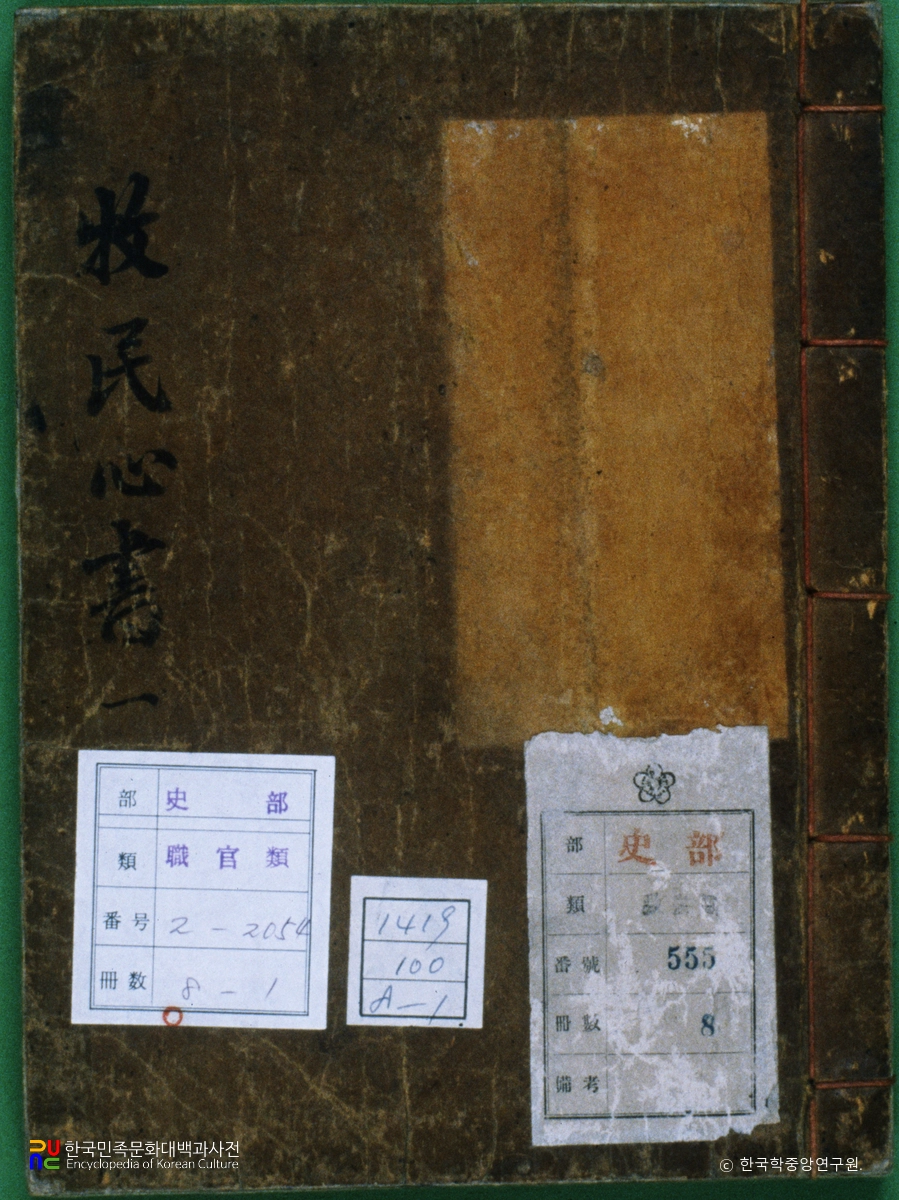 牧民心書 一
部 史部
類 職官類
番号 2-2054
冊数 8-1
1419
100
A-1
部 史部
類
番號 555
冊数 8
備考
한국민족문화대백과사전
Encyclopedia of Korean Culture
© 한국학중앙연구원